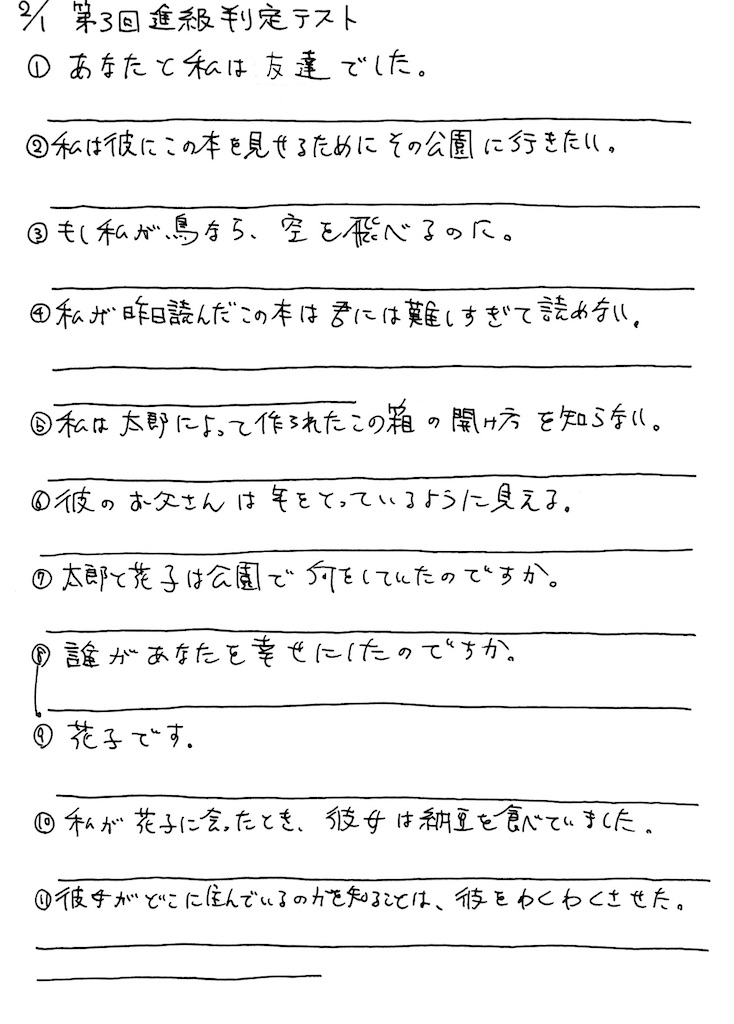 2/1 第3回進級判定テスト
① あなたと私は友達でした。
②私は彼にこの本を見せるためにその公園に行きたい。
③もし私が鳥なら、空を飛べるのに。
④私が昨日読んだこの本は君には難しすぎて読めない。
⑤私は太郎によって作られたこの箱の開け方を知らない。
⑥彼のお父さんは年をとっているように見える。
⑦太郎と花子は公園で何をしていたのですか。
⑧誰があなたを幸せにしたのですか。
⑨花子です。
⑩私が花子に会ったとき、彼女は納豆を食べていました。
⑪彼女がどこに住んでいるのかを知ることは、彼をわくわくさせた。